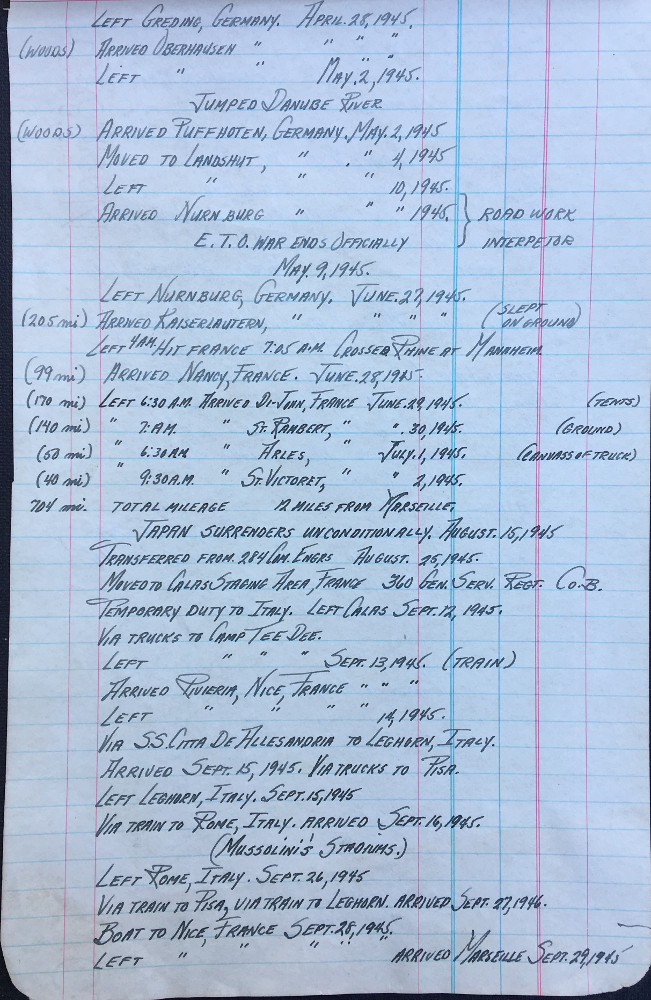 LEFT GREDING, GERMANY. APRIL. 28, 1945.
(WOODS) ARRIVED OBERHAUSEN " " " "
LEFT " " MAY. 2, 1945.
JUMPED DANUBE RIVER
(WOODS) ARRIVED PUFFHOTEN, GERMANY. MAY. 2, 1945
MOVED TO LANDSHUT, " . " 4, 1945
LEFT " " " 10, 1945.
ARRIVED NURNBURG " " " 1945. } ROAD WORK
E.T.O. WAR ENDS OFFICIALLY INTERPETOR
MAY. 9, 1945.
LEFT NURNBURG, GERMANY. JUNE. 27, 1945.
(205 mi) ARRIVED KAISERLAUTERN, " " " " (SLEPT ON GROUND)
LEFT 4 AM. HIT FRANCE 7:05 A.M. CROSSED RHINE AT MANHEIM.
(99 mi) ARRIVED NANCY, FRANCE. JUNE. 28, 1945.
(170 mi) LEFT 6:30 A.M. ARRIVED DI-JOAN, FRANCE JUNE. 29, 1945. (TENTS)
(140 mi) " 7: A.M. " ST. RAMBERT, " ". 30, 1945. (GROUND)
(60 mi) " 6:30 AM " ARLES, " JULY. 1, 1945. (CANVASS OF TRUCK)
(40 mi) " 9:30 A.M. " ST. VICTORET, " " 2, 1945.
704 mi. TOTAL MILEAGE 12 MILES FROM MARSEILLE.
JAPAN SURRENDERS UNCONDITIONALLY. AUGUST. 15, 1945
TRANSFERRED FROM. 284 COM. ENGRS AUGUST. 25, 1945.
MOVED TO CALAS STAGING AREA, FRANCE 360 GEN. SERV. REGT. CO. B.
TEMPORARY DUTY TO ITALY. LEFT CALAS SEPT. 12, 1945.
VIA TRUCKS TO CAMP TEE DEE.
LEFT " " " SEPT. 13, 1945. (TRAIN)
ARRIVED RIVIERIA, NICE, FRANCE " " "
LEFT " " " " 14, 1945.
VIA S.S. CITTA DE ALLESANDRIA TO LEGHORN, ITALY.
ARRIVED SEPT. 15, 1945. VIA TRUCKS TO PISA.
LEFT LEGHORN, ITALY. SEPT. 15, 1945
VIA TRAIN TO ROME, ITALY. ARRIVED SEPT. 16, 1945.
(MUSSOLINI'S STADIUMS.)
LEFT ROME, ITALY. SEPT. 26, 1945
VIA TRAIN TO PISA, VIA TRAIN TO LEGHORN. ARRIVED SEPT. 27, 1946.
BOAT TO NICE, FRANCE SEPT. 28, 1945.
LEFT " " " " " ARRIVED MARSEILLE SEPT. 29, 1945